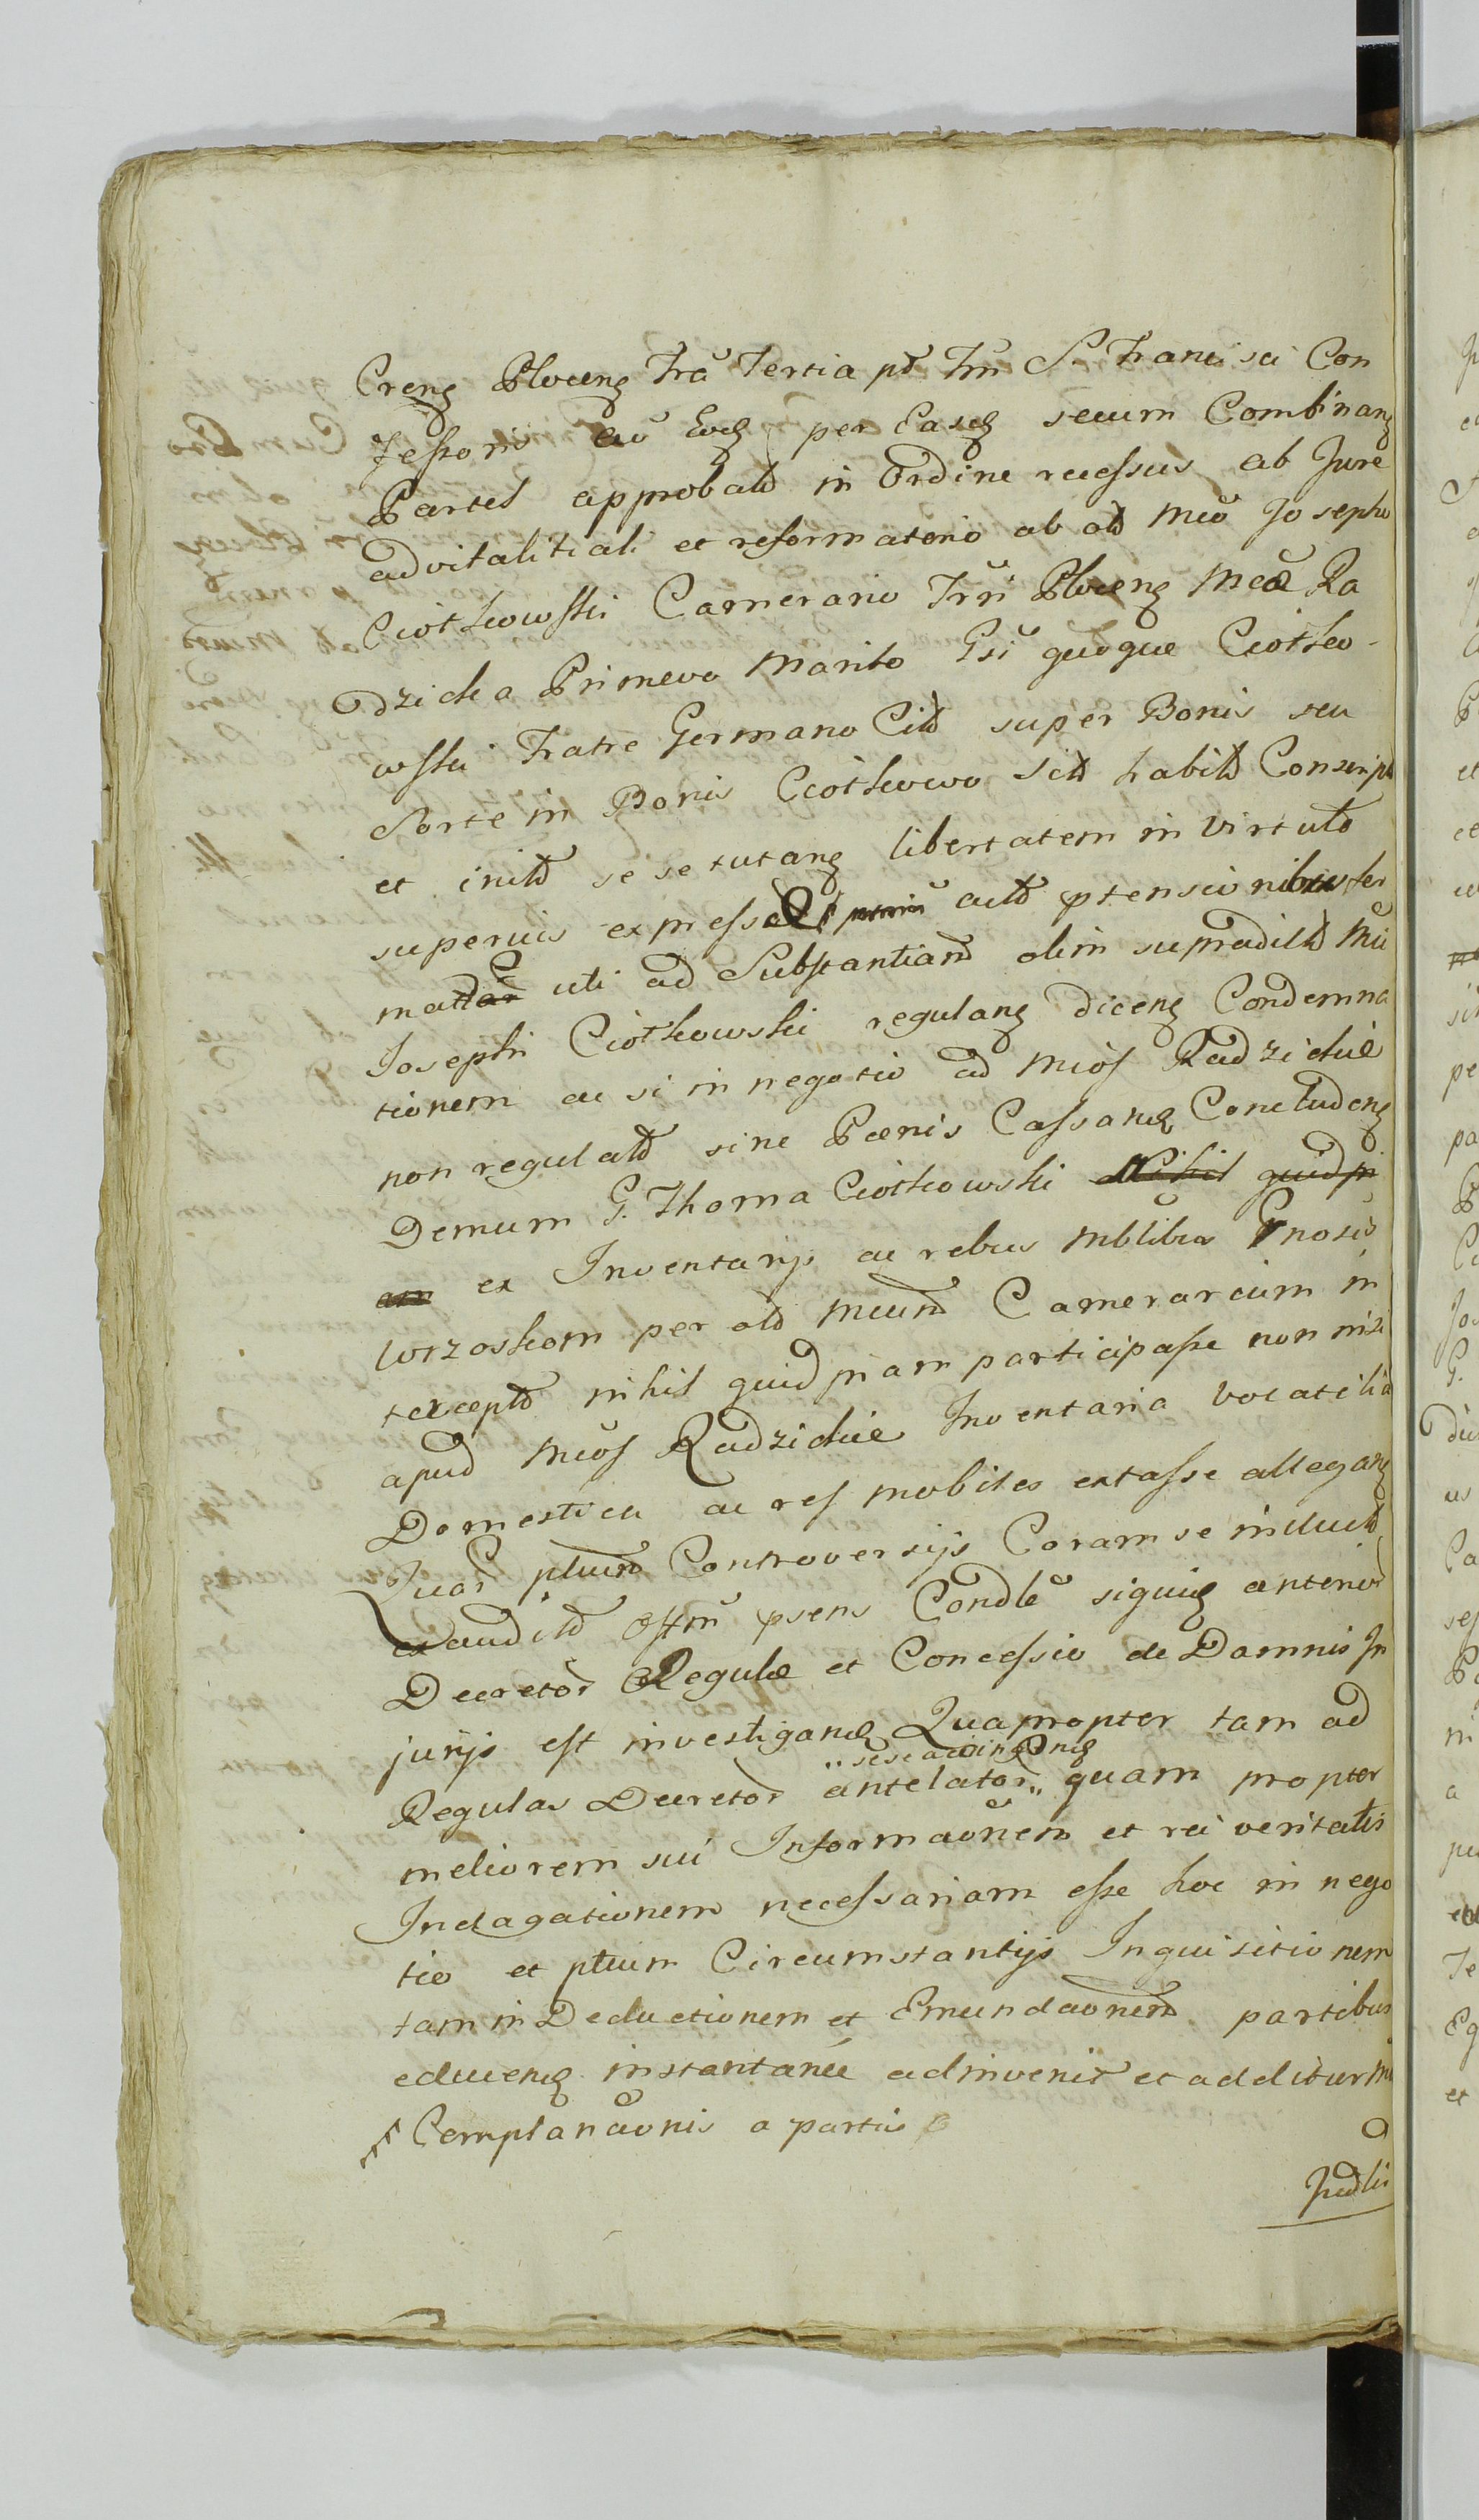 Creng Ploceng Fra Tertia pt Fm S. Francisci Con
fessoris eu Eoq per Easq secum Combinang
Partes approbatd in Ordine recessus ab Jure
advitalitiali et reformatorio ab od Mco Josepho
Ciotkowski Camerario Trri Ploceng Mcae Ra
dzicka Primevo Marito Gsi quoque Ciotko-
wski Fratre Germano Citd super Bonis seu
Sorte in Bonis Ciotkowo Sitd habitd Conscript
et initd sese tutang libertatem in Virtutd
superius express actd ptensionibus for
mattar uti ad Substantiand olim supradictd Mci
Josephi Ciotkowski regulang diceng Condemna
tionem ac si in negotio ad Mcos Radzickie
non regulatd sine Poenis Cassanq Concludeng
Demum G. Thoma Ciotkowski Nihil quidpi
am ex Inventarijs ac rebus Mblibus Gnosis
Worzoskom per old Mcund Camerarium in
terceptd nihil quidpiam participasse non nisi
apud Mcos Radzickie Inventaria Vocatilia
Domestica ac res mobiles extasse allegang
Quar ptium Controversijs Coram se inductd
exauditd Offm psens Condle siquiq anterior
Decretor Regulae et Concessio de Damnis In
jurijs est investiganq Quapropter tam ad
Regulas Decretor antelator quam propter
meliorem sui Informaonem et rei veritatis
Indagationem necessariam esse hoc in nego
tio et ptium Circumstantijs Inquisitionem
tam in Deductionem et Emundaonem partibus
educenq instantanee adinvenit et additur
Complanaonis a partis
Judlis